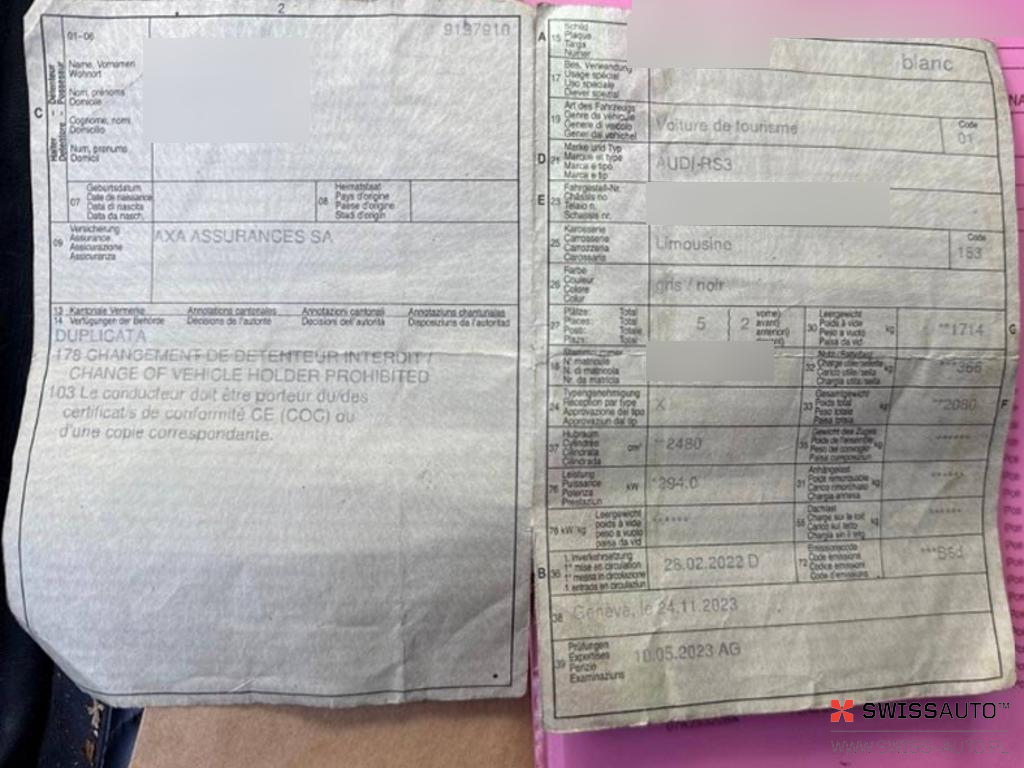 2
9197910
01-06
Name, Vornamen
Wohnort
Nom, prénoms
Domicile
Cognome, nomi
Domicilio
Num, prenums
Domicil
C
Halter - Détenteur
Detentore - Possessur
07
Geburtsdatum
Date de naissance
Data di nascita
Data da nasch.
08
Heimatstaat
Pays d'origine
Paese d'origine
Stadi d'origin
09
Versicherung
Assurance
Assicurazione
Assicuranza
AXA ASSURANCES SA
13 Kantonale Vermerke Annotations cantonales Annotazioni cantonali Annotaziuns chantunalas
14 Verfügungen der Behörde Décisions de l'autorité Decisioni dell'autorità Disposiziuns da l'autoritad
DUPLICATA
178 CHANGEMENT DE DETENTEUR INTERDIT /
CHANGE OF VEHICLE HOLDER PROHIBITED
103 Le conducteur doit être porteur du/des
certificats de conformité CE (COC) ou
d'une copie correspondante.
A 15
Schild
Plaque
Targa
Numer
blanc
17
Bes. Verwendung
Usage spécial
Uso speciale
Diever spezial
19
Art des Fahrzeugs
Genre de véhicule
Genere di veicolo
Gener dal vehichel
Voiture de tourisme
Code
01
D 21
Marke und Typ
Marque et type
Marca e tipo
Marca e tip
AUDI-RS3
E 23
Fahrgestell-Nr.
Châssis no
Telaio n.
Schassis nr.
25
Karosserie
Carrosserie
Carrozzeria
Carossaria
Limousine
Code
153
26
Farbe
Couleur
Colore
Colur
gris / noir
27
Plätze: Total
Places: Total
Posti: Totale
Plazs: Total
5
2
vorne)
avant)
anteriori)
davant)
30
Leergewicht
Poids à vide
Peso a vuoto
Paisa da vid
kg
**1714
G
18
N° matricule
N. di matricola
Nr. da matricla
32
Charge utile/sella
Carico utile/sella
Chargia utila/sella
kg
***366
24
Typengenehmigung
Réception par type
Approvazione del tipo
Approvaziun dal tip
X
33
Gesamtgewicht
Poids total
Peso totale
Paisa totala
kg
**2080
F
37
Hubraum
Cylindrée
Cilindrata
Cilindrada
cm³
**2480
35
Gewicht des Zuges
Poids de l'ensemble
Peso del convoglio
Paisa cumposiziun
kg
******
76
Leistung
Puissance
Potenza
Prestaziun
kW
*294.0
31
Anhängelast
Poids remorquable
Carico rimorchiato
Chargia annexa
kg
******
78 kW/kg
Leergewicht
poids à vide
peso a vuoto
paisa da vid
******
55
Dachlast
Charge sur le toit
Carico sul tetto
Chargia sin il tetg
kg
******
B 36
1. Inverkehrsetzung
1re mise en circulation
1a messa in circolazione
1. entrada en circulaziun
28.02.2022 D
72
Emissionscode
Code émissions
Codice emissioni
Code d'emissiuns
***B6d
38
Genève, le 24.11.2023
39
Prüfungen
Expertises
Perizie
Examinaziuns
10.05.2023 AG
SWISSAUTO™